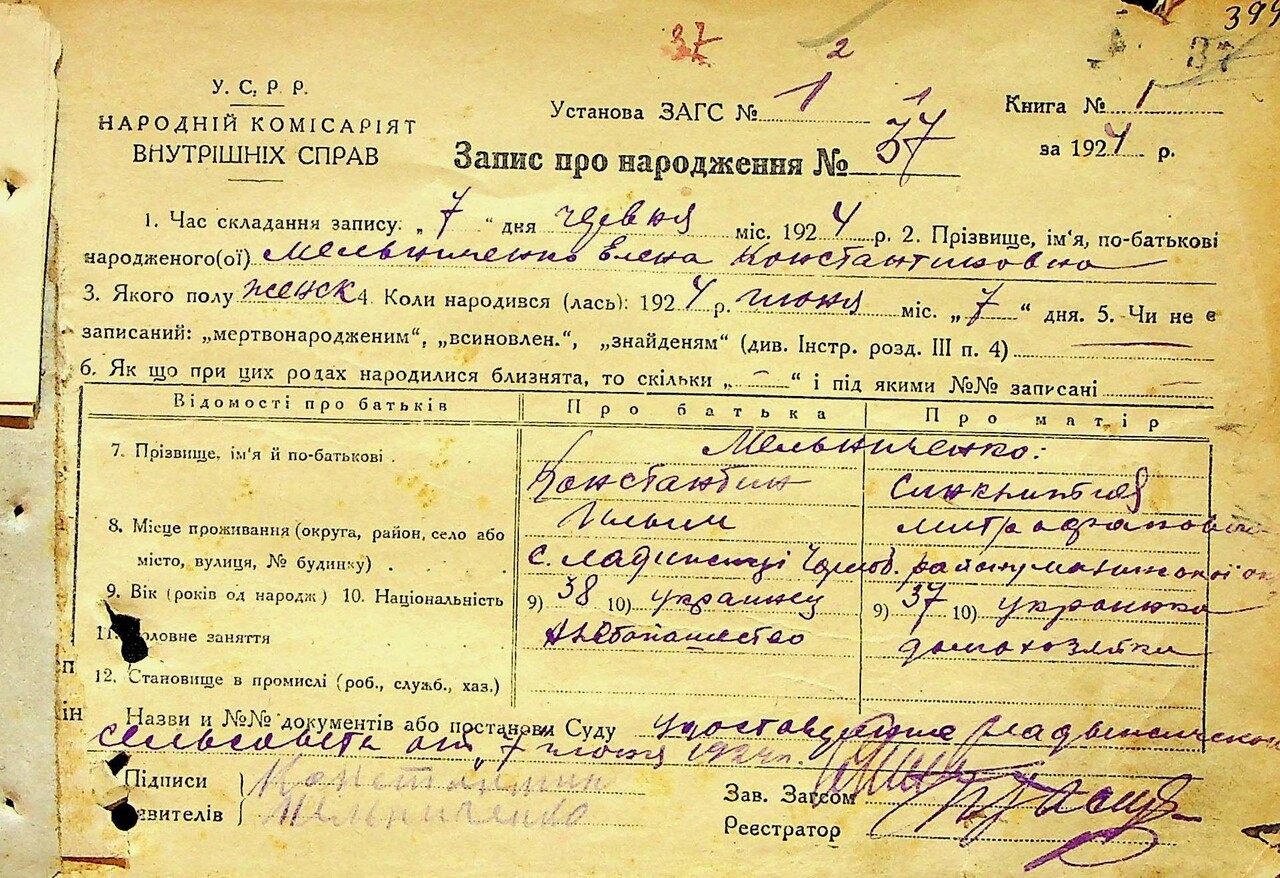 399
37 2 37
У. С. Р. Р.
НАРОДНІЙ КОМІСАРІЯТ
ВНУТРІШНІХ СПРАВ
Установа ЗАГС № 1
Книга № 1
за 1924 р.
Запис про народження № 37
1
1. Час складання запису: „7“ дня червня міс. 1924 р. 2. Прізвище, ім'я, по-батькові
народженого(ої) Мельниченко Елена Константиновна
3. Якого полу женск 4. Коли народився (лась): 1924 р. июня міс. „7“ дня. 5. Чи не є
записаний: „мертвонародженим“, „всиновлен.“, „знайденям“ (див. Інстр. розд. III п. 4) —
6. Як що при цих родах народилися близнята, то скільки „—“ і під якими №№ записані —
Відомості про батьків Про батька Про матір
Мельниченко:
7. Прізвище, ім'я й по-батькові . Константин
8. Місце проживання (округа, район, село або
місто, вулиця, № будинку) . с.
9. Вік (років од народж) 10. Національність 9) 38 10) украинец 9) 37 10) украинка
11. Головне заняття хлебопашество домохозяйка
12. Становище в промислі (роб., служб., хаз.)
Назви и №№ документів або постанови Суду
сельсовета от 7 июня 1924 г.
Підписи Константин
явителів Мельниченко
Зав. Загсом
Реєстратор